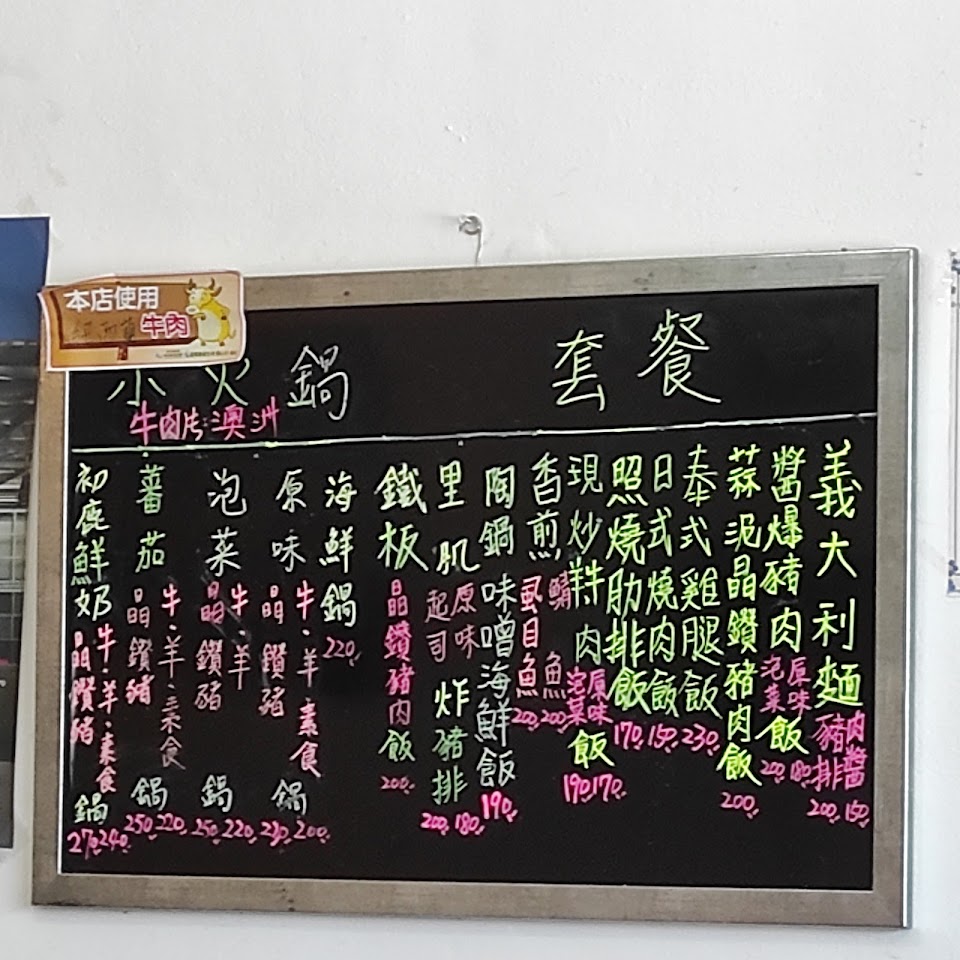 本店使用
牛肉
小火鍋
牛肉片:澳洲
套餐
義大利麵
肉醬 150
豬排 200
醬爆豬肉飯
原味 180
泡菜 200
蒜泥晶鑽豬肉飯 200
泰式雞腿飯 230
日式燒肉飯 150
照燒肋排飯 170
現炒牛肉飯
原味 170
泡菜 190
香煎
鯖魚 200
虱目魚 200
陶鍋味噌海鮮飯 190
里肌炸豬排
原味 180
起司 200
鐵板晶鑽豬肉飯 200
海鮮鍋 220
原味鍋
牛·羊·素食 200
晶鑽豬 230
泡菜鍋
牛·羊 220
晶鑽豬 250
蕃茄鍋
牛·羊·素食 220
晶鑽豬 250
初鹿鮮奶鍋
牛·羊·素食 240
晶鑽豬 270